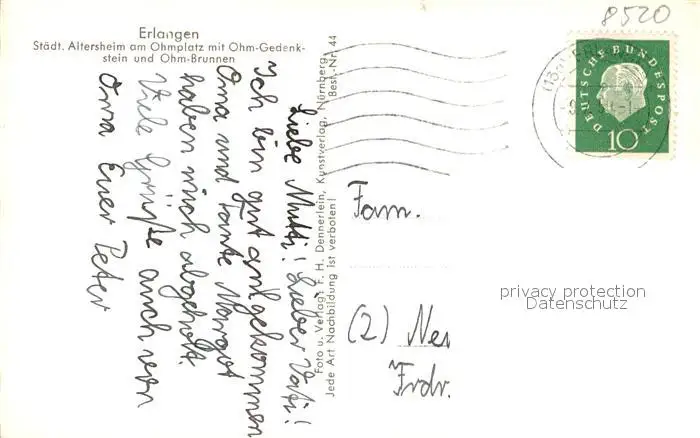 8520
Erlangen
Städt. Altersheim am Ohmplatz mit Ohm-Gedenk-
stein und Ohm-Brunnen
Liebe Mutti! Lieber Vati!
Ich bin gut angekommen
Oma und Tante Margot
haben mich abgeholt.
Viele Grüße auch von
Oma Euer Peter
Foto u. Verlag: F. H. Dennerlein, Kunstverlag, Nürnberg
Best.-Nr. 44
Jede Art Nachbildung ist verboten!
DEUTSCHE BUNDESPOST
10
Fam.
(2) Neu
Frdr.
privacy protection
Datenschutz